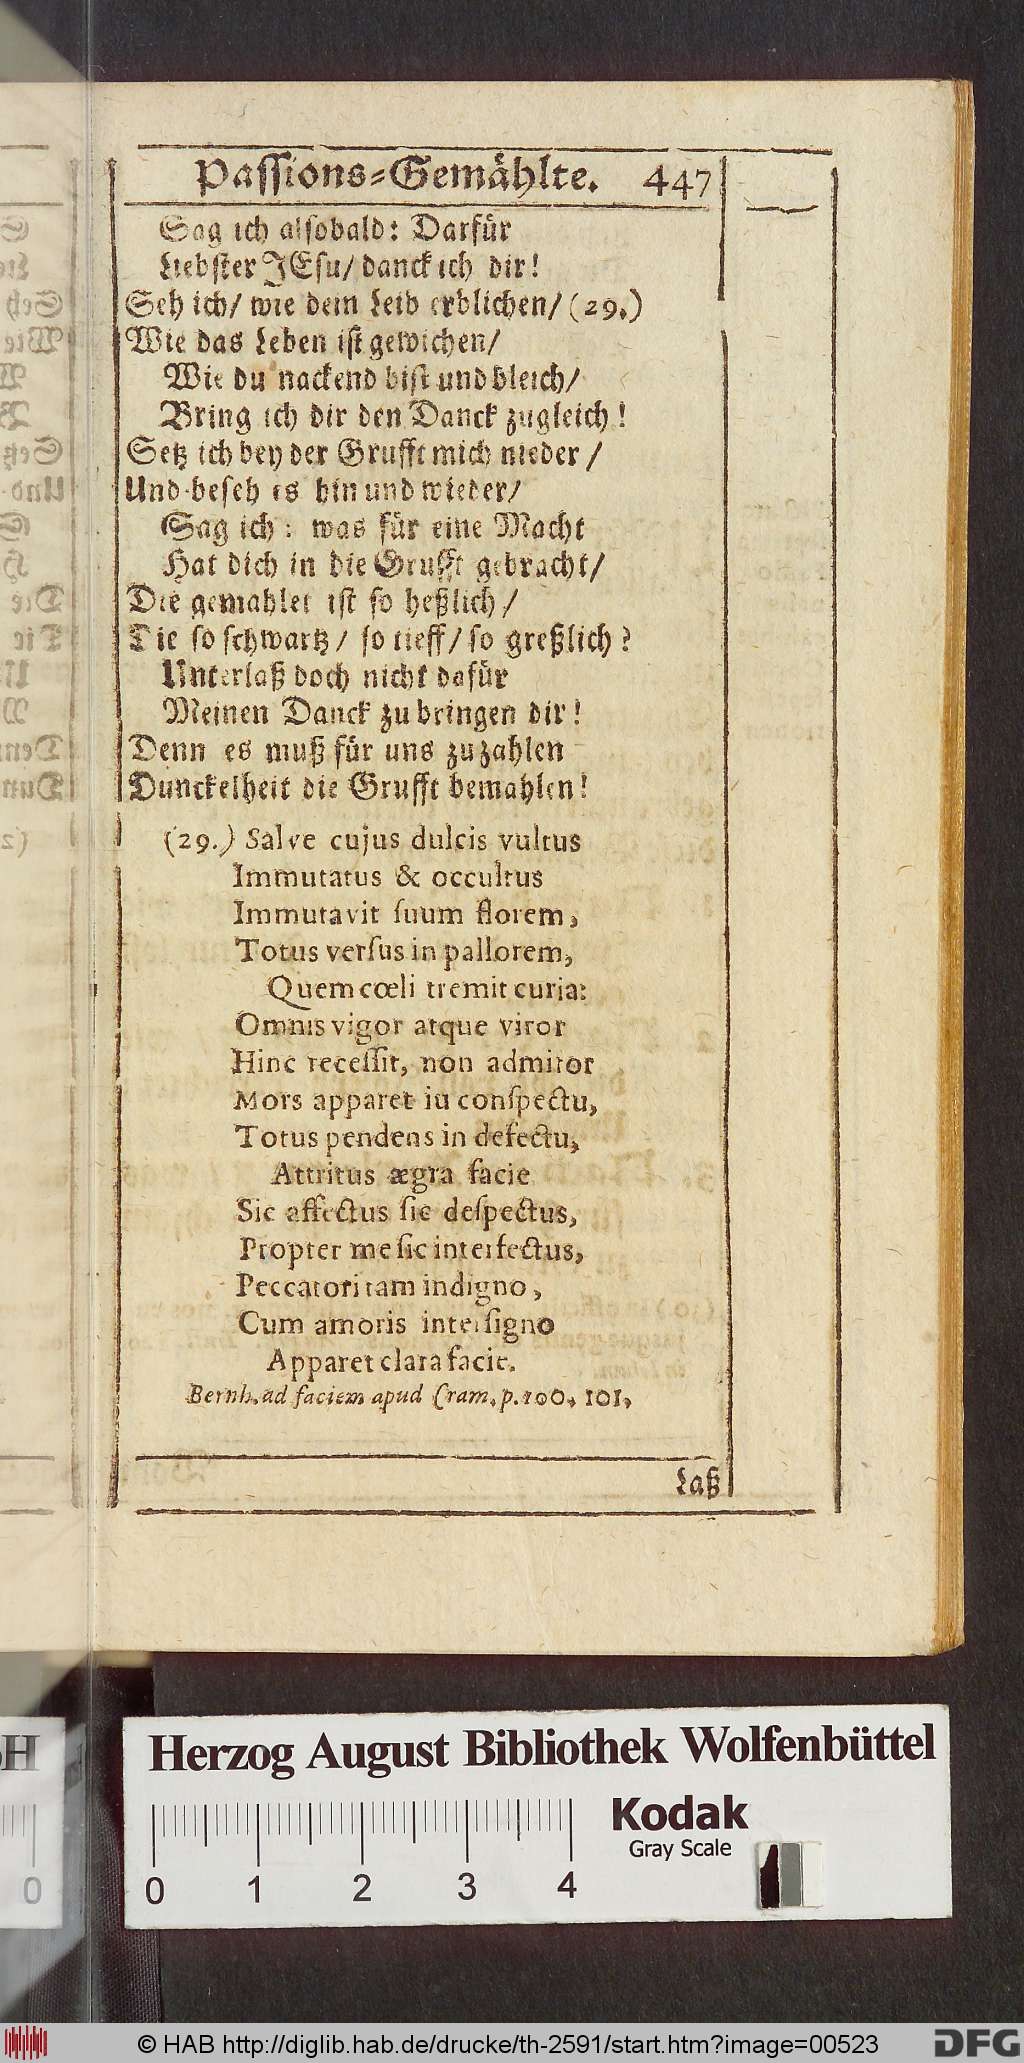 Passions-Gemählte. 447
Sag ich alsobald: Darfür
Liebster JEsu/ danck ich dir!
Seh ich/ wie dein Leib erblichen/ (29.)
Wie das Leben ist gewichen/
Wie du nackend bist und bleich/
Bring ich dir den Danck zugleich!
Setz ich bey der Grufft mich nieder/
Und beseh es hin und wieder/
Sag ich: was für eine Macht
Hat dich in die Grufft gebracht/
Die gemahlet ist so heßlich/
Die so schwartz/ so tieff/ so greßlich?
Unterlaß doch nicht dafür
Meinen Danck zu bringen dir!
Denn es muß für uns zu zahlen
Dunckelheit die Grufft bemahlen!
(29.) Salve cujus dulcis vultus
Immutatus & occultus
Immutavit ſuum florem,
Totus verſus in pallorem,
Quem cœli tremit curia:
Omnis vigor atque viror
Hinc receſſit, non admiror
Mors apparet iu conſpectu,
Totus pendens in defectu,
Attritus ægra facie
Sic affectus ſic deſpectus,
Propter me ſic interfectus,
Peccatori tam indigno,
Cum amoris inter ſigno
Apparet clara facie.
Bernh. ad faciem apud Cram. p. 100, 101,
Laß
Herzog August Bibliothek Wolfenbüttel
Kodak
Gray Scale
0 1 2 3 4
© HAB http://diglib.hab.de/drucke/th-2591/start.htm?image=00523
DFG